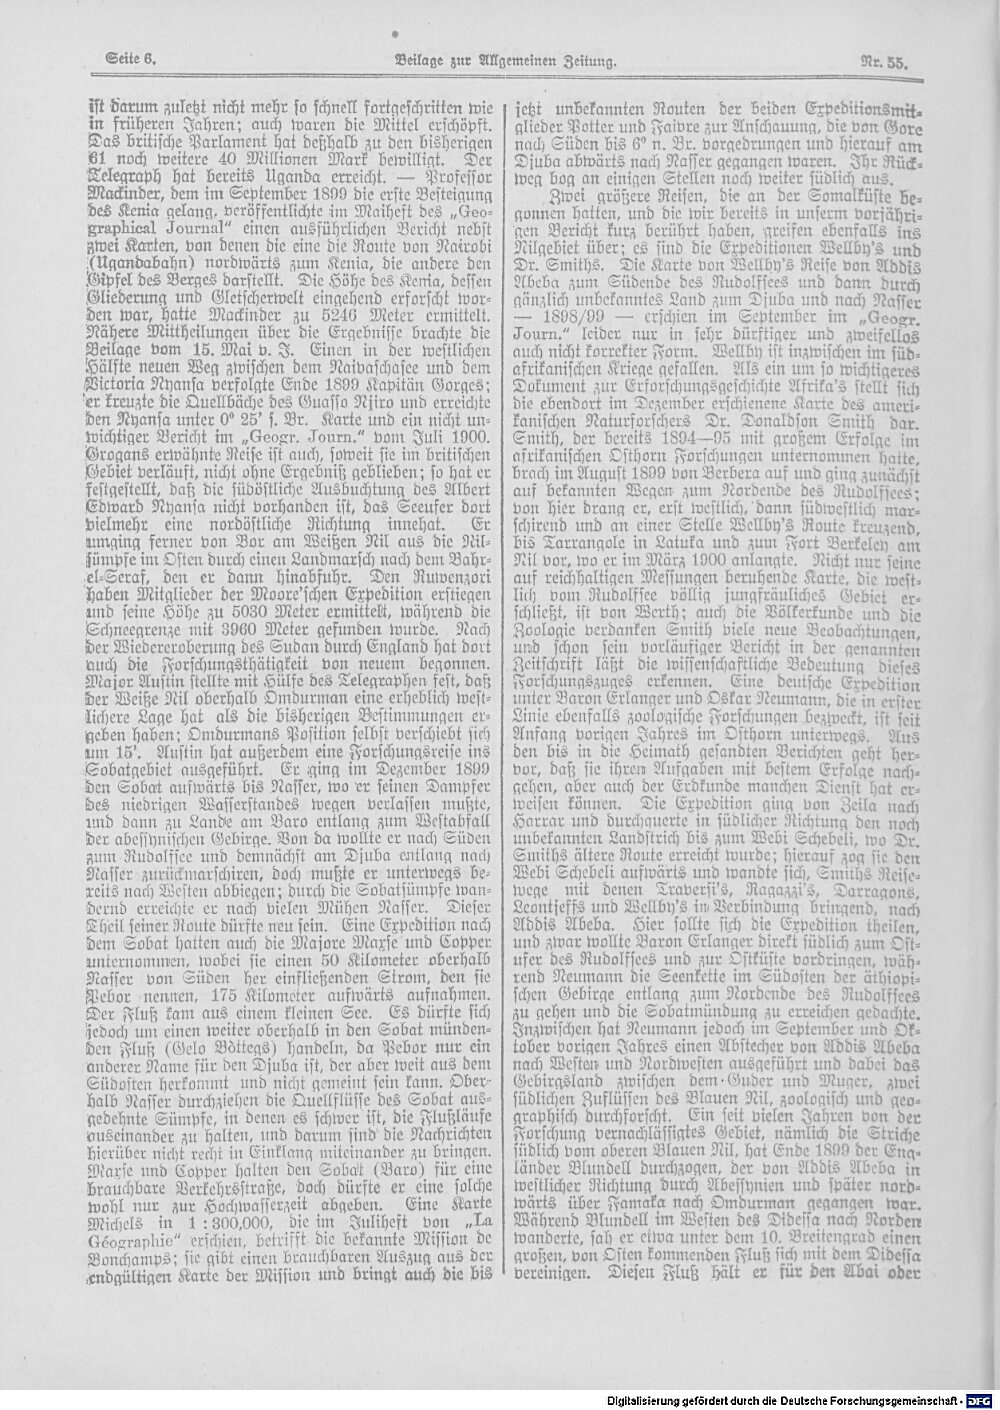 Seite 6.
Beilage zur Allgemeinen Zeitung.
Nr. 55.
ist darum zuletzt nicht mehr so schnell fortgeschritten wie
in früheren Jahren; auch waren die Mittel erschöpft.
Das britische Parlament hat deßhalb zu den bisherigen
61 noch weitere 40 Millionen Mark bewilligt. Der
Telegraph hat bereits Uganda erreicht. — Professor
Mackinder, dem im September 1899 die erste Besteigung
des Kenia gelang, veröffentlichte im Maiheft des „Geo-
graphical Journal“ einen ausführlichen Bericht nebst
zwei Karten, von denen die eine die Route von Nairobi
(Ugandabahn) nordwärts zum Kenia, die andere den
Gipfel des Berges darstellt. Die Höhe des Kenia, dessen
Gliederung und Gletscherwelt eingehend erforscht wor-
den war, hatte Mackinder zu 5246 Meter ermittelt.
Nähere Mittheilungen über die Ergebnisse brachte die
Beilage vom 15. Mai v. J. Einen in der westlichen
Hälfte neuen Weg zwischen dem Naivaschasee und dem
Victoria Nyansa verfolgte Ende 1899 Kapitän Gorges;
er kreuzte die Quellbäche des Guasso Njiro und erreichte
den Nyansa unter 0° 25′ s. Br. Karte und ein nicht un-
wichtiger Bericht im „Geogr. Journ.“ vom Juli 1900.
Grogans erwähnte Reise ist auch, soweit sie im britischen
Gebiet verläuft, nicht ohne Ergebniß geblieben; so hat er
festgestellt, daß die südöstliche Ausbuchtung des Albert
Edward Nyansa nicht vorhanden ist, das Seeufer dort
vielmehr eine nordöstliche Richtung innehat. Er
umging ferner von Bor am Weißen Nil aus die Nil-
sümpfe im Osten durch einen Landmarsch nach dem Bahr-
el-Seraf, den er dann hinabfuhr. Den Ruwenzori
haben Mitglieder der Moore'schen Expedition erstiegen
und seine Höhe zu 5030 Meter ermittelt, während die
Schneegrenze mit 3960 Meter gefunden wurde. Nach
der Wiedereroberung des Sudan durch England hat dort
auch die Forschungsthätigkeit von neuem begonnen.
Major Austin stellte mit Hülfe des Telegraphen fest, daß
der Weiße Nil oberhalb Omdurman eine erheblich west-
lichere Lage hat als die bisherigen Bestimmungen er-
geben haben; Omdurmans Position selbst verschiebt sich
um 15′. Austin hat außerdem eine Forschungsreise ins
Sobatgebiet ausgeführt. Er ging im Dezember 1899
den Sobat aufwärts bis Nasser, wo er seinen Dampfer
des niedrigen Wasserstandes wegen verlassen mußte,
und dann zu Lande am Baro entlang zum Westabfall
der abessynischen Gebirge. Von da wollte er nach Süden
zum Rudolfsee und demnächst am Djuba entlang nach
Nasser zurückmarschiren, doch mußte er unterwegs be-
reits nach Westen abbiegen; durch die Sobatsümpfe wan-
dernd erreichte er nach vielen Mühen Nasser. Dieser
Theil seiner Route dürfte neu sein. Eine Expedition nach
dem Sobat hatten auch die Majore Maxse und Copper
unternommen, wobei sie einen 50 Kilometer oberhalb
Nasser von Süden her einfließenden Strom, den sie
Pebor nennen, 175 Kilometer aufwärts aufnahmen.
Der Fluß kam aus einem kleinen See. Es dürfte sich
jedoch um einen weiter oberhalb in den Sobat münden-
den Fluß (Gelo Böttegs) handeln, da Pebor nur ein
anderer Name für den Djuba ist, der aber weit aus dem
Südosten herkommt und nicht gemeint sein kann. Ober-
halb Nasser durchziehen die Quellflüsse des Sobat aus-
gedehnte Sümpfe, in denen es schwer ist, die Flußläufe
auseinander zu halten, und darum sind die Nachrichten
hierüber nicht recht in Einklang miteinander zu bringen.
Maxse und Copper halten den Sobat (Baro) für eine
brauchbare Verkehrsstraße, doch dürfte er eine solche
wohl nur zur Hochwasserzeit abgeben. Eine Karte
Michels in 1 : 300,000, die im Juliheft von „La
Géographie“ erschien, betrifft die bekannte Mission de
Bonchamps; sie gibt einen brauchbaren Auszug aus der
endgültigen Karte der Mission und bringt auch die bis
jetzt unbekannten Routen der beiden Expeditionsmit-
glieder Potter und Faivre zur Anschauung, die von Gore
nach Süden bis 6° n. Br. vorgedrungen und hierauf am
Djuba abwärts nach Nasser gegangen waren. Ihr Rück-
weg bog an einigen Stellen noch weiter südlich aus.
Zwei größere Reisen, die an der Somalküste be-
gonnen hatten, und die wir bereits in unserm vorjähri-
gen Bericht kurz berührt haben, greifen ebenfalls ins
Nilgebiet über; es sind die Expeditionen Wellby's und
Dr. Smiths. Die Karte von Wellby's Reise von Addis
Abeba zum Südende des Rudolfsees und dann durch
gänzlich unbekanntes Land zum Djuba und nach Nasser
— 1898/99 — erschien im September im „Geogr.
Journ.“ leider nur in sehr dürftiger und zweifellos
auch nicht korrekter Form. Wellby ist inzwischen im süd-
afrikanischen Kriege gefallen. Als ein um so wichtigeres
Dokument zur Erforschungsgeschichte Afrika's stellt sich
die ebendort im Dezember erschienene Karte des ameri-
kanischen Naturforschers Dr. Donaldson Smith dar.
Smith, der bereits 1894—95 mit großem Erfolge im
afrikanischen Osthorn Forschungen unternommen hatte,
brach im August 1899 von Berbera auf und ging zunächst
auf bekannten Wegen zum Nordende des Rudolfsees;
von hier drang er, erst westlich, dann südwestlich mar-
schirend und an einer Stelle Wellby's Route kreuzend,
bis Tarrangole in Latuka und zum Fort Berkeley am
Nil vor, wo er im März 1900 anlangte. Nicht nur seine
auf reichhaltigen Messungen beruhende Karte, die west-
lich vom Rudolfsee völlig jungfräuliches Gebiet er-
schließt, ist von Werth; auch die Völkerkunde und die
Zoologie verdanken Smith viele neue Beobachtungen,
und schon sein vorläufiger Bericht in der genannten
Zeitschrift läßt die wissenschaftliche Bedeutung dieses
Forschungszuges erkennen. Eine deutsche Expedition
unter Baron Erlanger und Oskar Neumann, die in erster
Linie ebenfalls zoologische Forschungen bezweckt, ist seit
Anfang vorigen Jahres im Osthorn unterwegs. Aus
den bis in die Heimath gesandten Berichten geht her-
vor, daß sie ihren Aufgaben mit bestem Erfolge nach-
gehen, aber auch der Erdkunde manchen Dienst hat er-
weisen können. Die Expedition ging von Zeila nach
Harrar und durchquerte in südlicher Richtung den noch
unbekannten Landstrich bis zum Webi Schebeli, wo Dr.
Smiths ältere Route erreicht wurde; hierauf zog sie den
Webi Schebeli aufwärts und wandte sich, Smiths Reise-
wege mit denen Traversi's, Ragazzi's, Darragons,
Leontjeffs und Wellby's in Verbindung bringend, nach
Addis Abeba. Hier sollte sich die Expedition theilen,
und zwar wollte Baron Erlanger direkt südlich zum Ost-
ufer des Rudolfsees und zur Ostküste vordringen, wäh-
rend Neumann die Seenkette im Südosten der äthiopi-
schen Gebirge entlang zum Nordende des Rudolfsees
zu gehen und die Sobatmündung zu erreichen gedachte.
Inzwischen hat Neumann jedoch im September und Ok-
tober vorigen Jahres einen Abstecher von Addis Abeba
nach Westen und Nordwesten ausgeführt und dabei das
Gebirgsland zwischen dem Guder und Muger, zwei
südlichen Zuflüssen des Blauen Nil, zoologisch und geo-
graphisch durchforscht. Ein seit vielen Jahren von der
Forschung vernachlässigtes Gebiet, nämlich die Striche
südlich vom oberen Blauen Nil, hat Ende 1899 der Eng-
länder Blundell durchzogen, der von Addis Abeba in
westlicher Richtung durch Abessynien und später nord-
wärts über Famaka nach Omdurman gegangen war.
Während Blundell im Westen des Didessa nach Norden
wanderte, sah er etwa unter dem 10. Breitengrad einen
großen, von Osten kommenden Fluß sich mit dem Didessa
vereinigen. Diesen Fluß hält er für den Abai oder
Digitalisierung gefördert durch die Deutsche Forschungsgemeinschaft - DFG